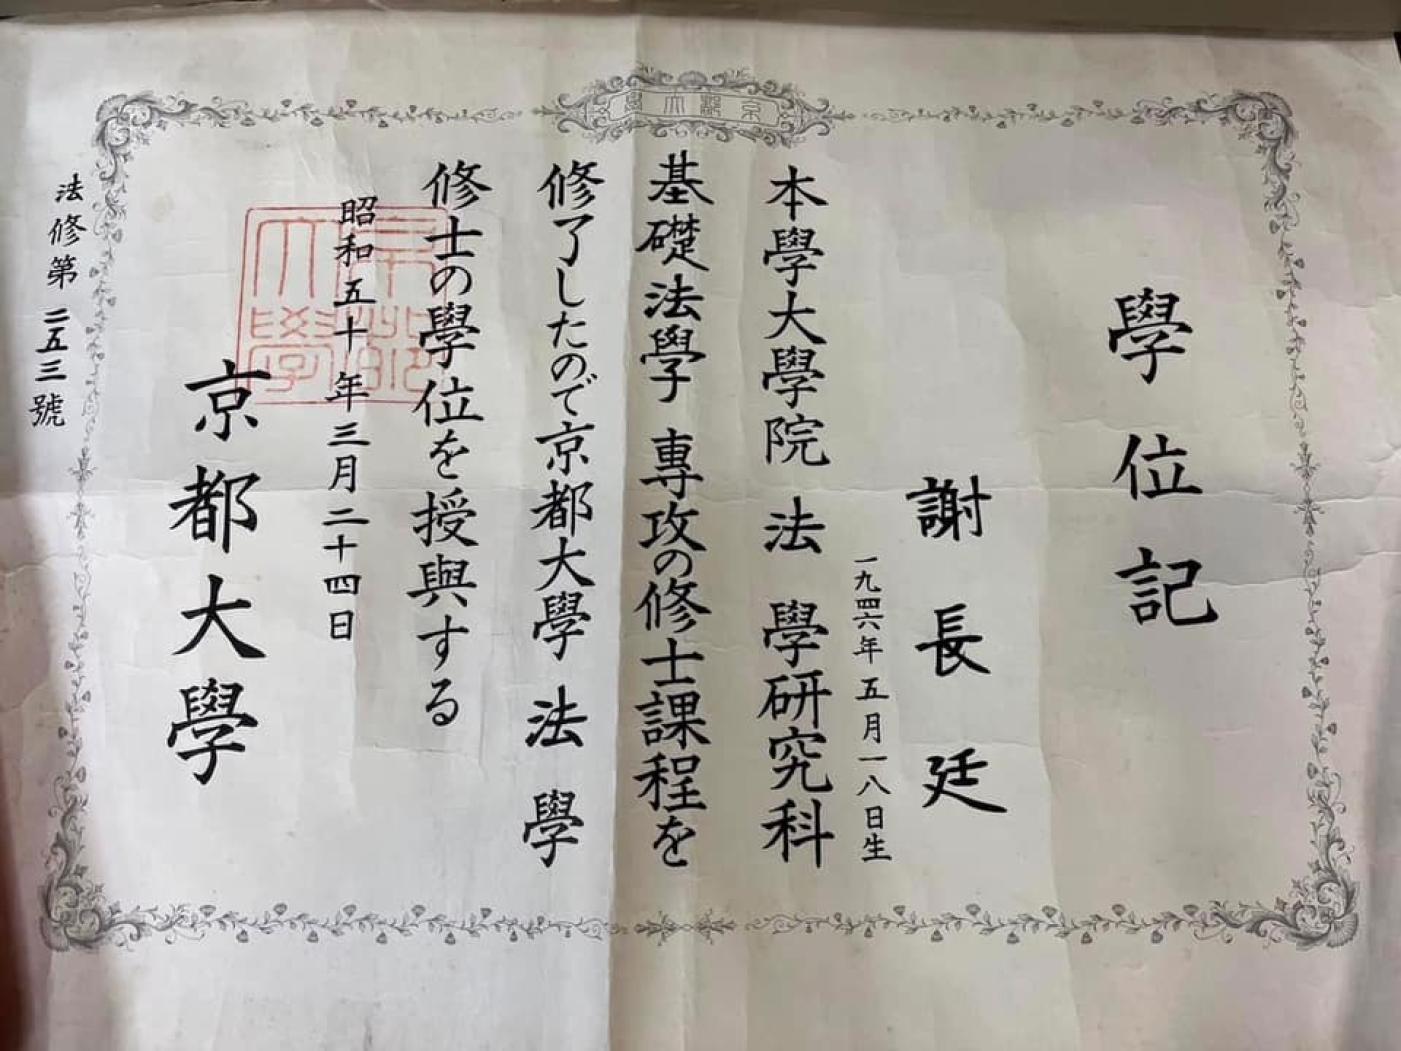 京都大學
學位記
謝長廷
一九四六年五月一八日生
本學大學院法學研究科
基礎法學專攻の修士課程を
修了したので京都大學法學
修士の學位を授與する
昭和五十年三月二十四日
京都大學
京都大學
法修第二五三號